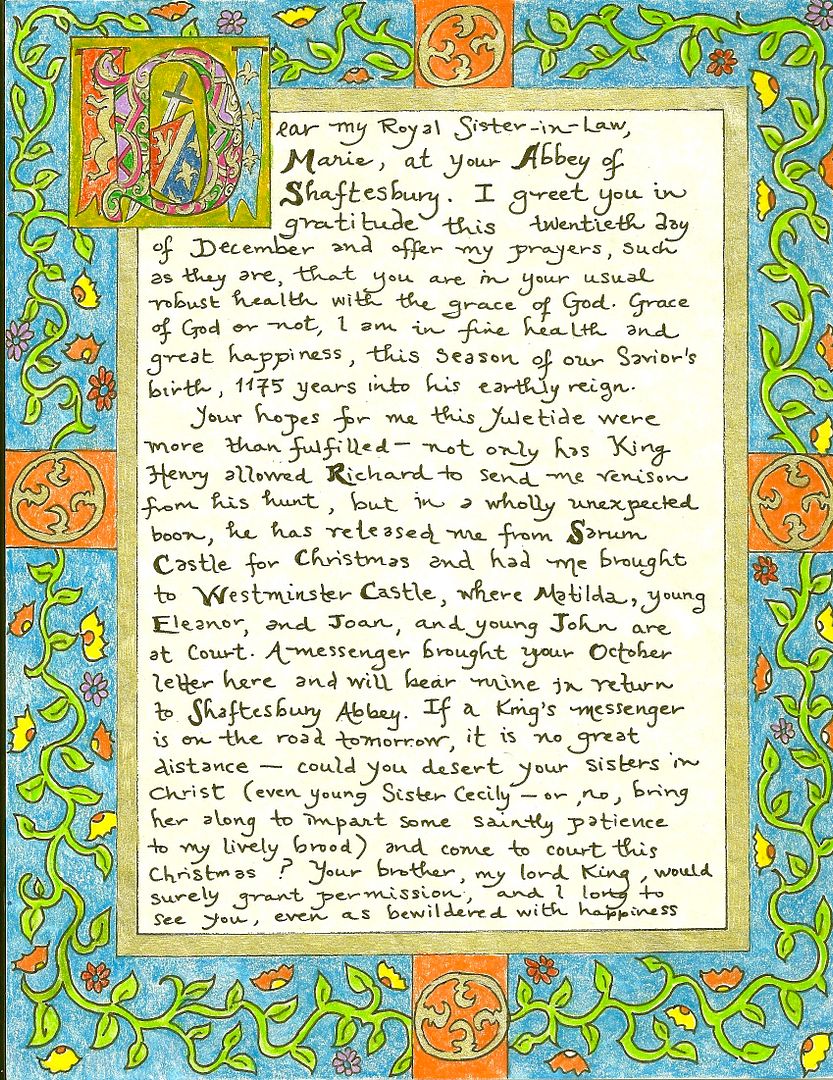 Dear my Royal Sister-in-Law,
Marie, at your Abbey of
Shaftesbury. I greet you in
gratitude this twentieth day
of December and offer my prayers, such
as they are, that you are in your usual
robust health with the grace of God. Grace
of God or not, I am in fine health and
great happiness, this season of our Savior's
birth, 1175 years into his earthly reign.
Your hopes for me this Yuletide were
more than fulfilled — not only has King
Henry allowed Richard to send me venison
from his hunt, but in a wholly unexpected
boon, he has released me from Sarum
Castle for Christmas and had me brought
to Westminster Castle, where Matilda, young
Eleanor, and Joan, and young John are
at Court. A messenger brought your October
letter here and will bear mine in return
to Shaftesbury Abbey. If a King's messenger
is on the road tomorrow, it is no great
distance — could you desert your sisters in
Christ (even young Sister Cecily — or, no, bring
her along to impart some saintly patience
to my lively brood) and come to court this
Christmas? Your brother, my lord King, would
surely grant permission, and I long to
see you, even as bewildered with happiness